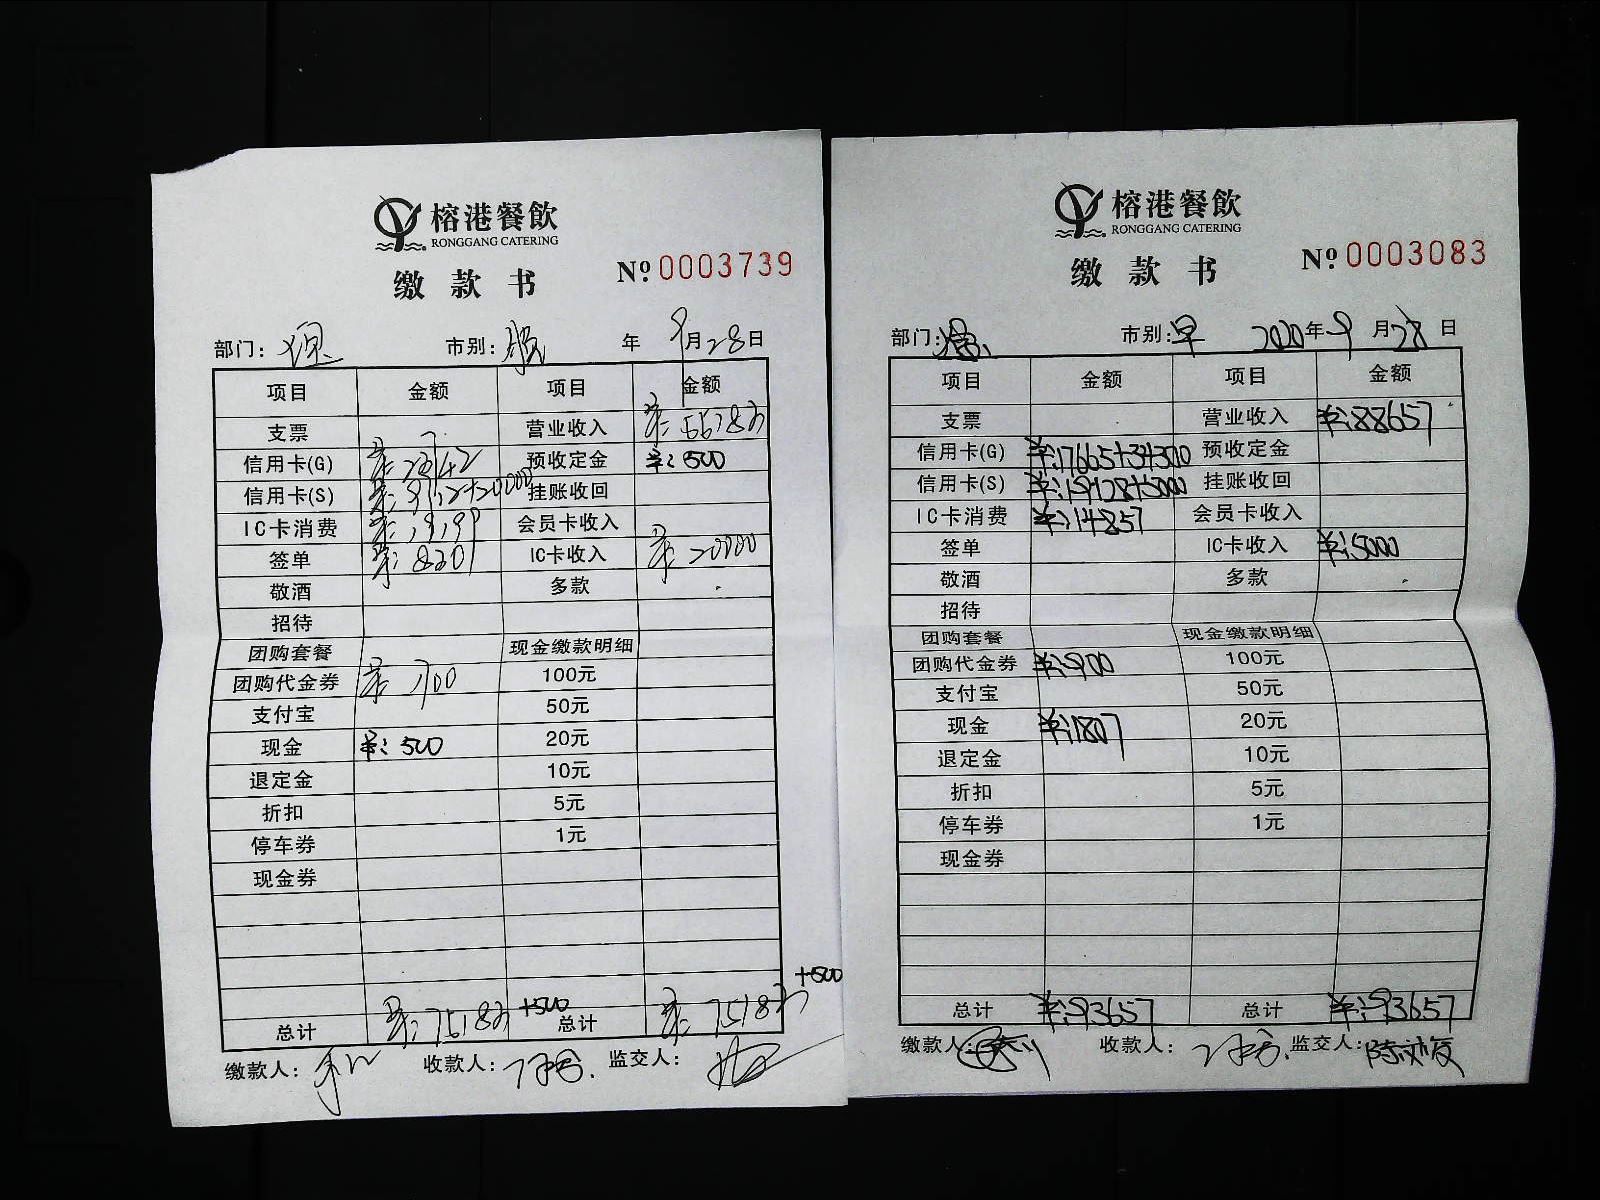 榕港餐飲
RONGGANG CATERING
缴款书 № 0003739
部门: 市别: 年 9月28日
项目 金额 项目 金额
支票 营业收入
信用卡(G) 预收定金 ¥:500
信用卡(S) 挂账收回
IC卡消费 会员卡收入
签单 IC卡收入 20000
敬酒 多款
招待
团购套餐 现金缴款明细
团购代金券 100元
支付宝 50元
现金 ¥:500 20元
退定金 10元
折扣 5元
停车券 1元
现金券
+500
总计 +500 总计
缴款人: 收款人: 监交人:
榕港餐飲
RONGGANG CATERING
缴款书 № 0003083
部门: 市别:早 2020年9月28日
项目 金额 项目 金额
支票 营业收入 ¥:88657
信用卡(G) ¥:17665+34300 预收定金
信用卡(S) ¥:19128+5000 挂账收回
IC卡消费 ¥:14857 会员卡收入
签单 IC卡收入 ¥:5000
敬酒 多款
招待
团购套餐 现金缴款明细
团购代金券 ¥:900 100元
支付宝 50元
现金 ¥:1807 20元
退定金 10元
折扣 5元
停车券 1元
现金券
总计 ¥:93657 总计 ¥:93657
缴款人: 收款人: 监交人: